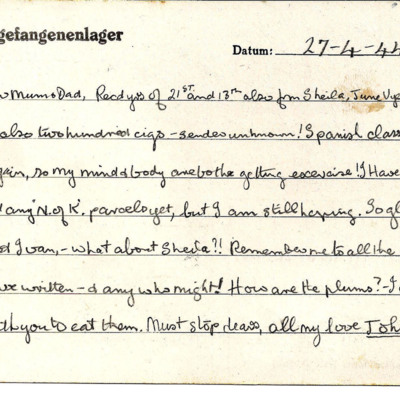 gefangenenlager
Datum: 27-4-44
Mum & Dad, Recd yrs of 21ST and 13TH also fm Sheila, June
also two hundred cigs - sender unknown! Spanish class
so my mind & body are both getting excercise!! Have
any N. of K. parcels yet, but I am still hoping. So gl
Ivan, - what about Sheila?! Remember me to all the
written - & any who might! How are the plums? - I
you to eat them. Must stop dears, all my love Joh